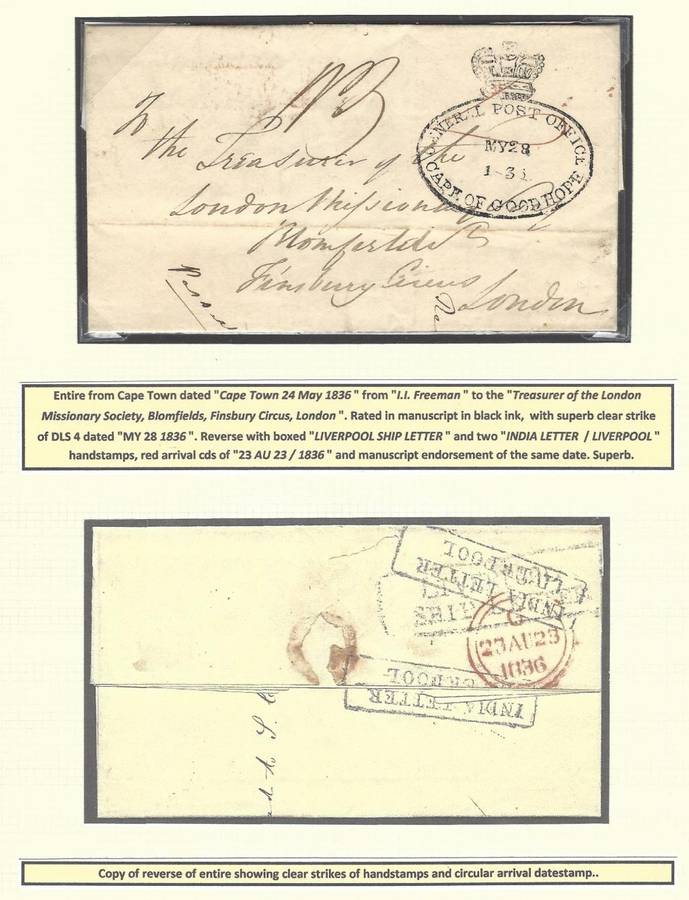 To
the Treasurer of the
London Missionary
Blomfields
Finsbury Circus
London
GENERAL POST OFFICE
MY 28
CAPE OF GOOD HOPE
Entire from Cape Town dated "Cape Town 24 May 1836" from "I.I. Freeman" to the "Treasurer of the London
Missionary Society, Blomfields, Finsbury Circus, London". Rated in manuscript in black ink, with superb clear strike
of DLS 4 dated "MY 28 1836". Reverse with boxed "LIVERPOOL SHIP LETTER" and two "INDIA LETTER / LIVERPOOL"
handstamps, red arrival cds of "23 AU 23 / 1836" and manuscript endorsement of the same date. Superb.
INDIA LETTER
LIVERPOOL
INDIA LETTER
LIVERPOOL
23 AU 23
1836
INDIA LETTER
Copy of reverse of entire showing clear strikes of handstamps and circular arrival datestamp..